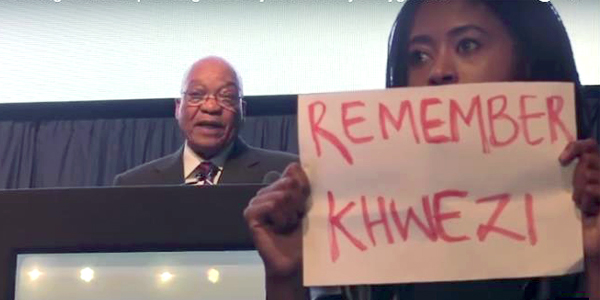 REMEMBER
KHWEZI